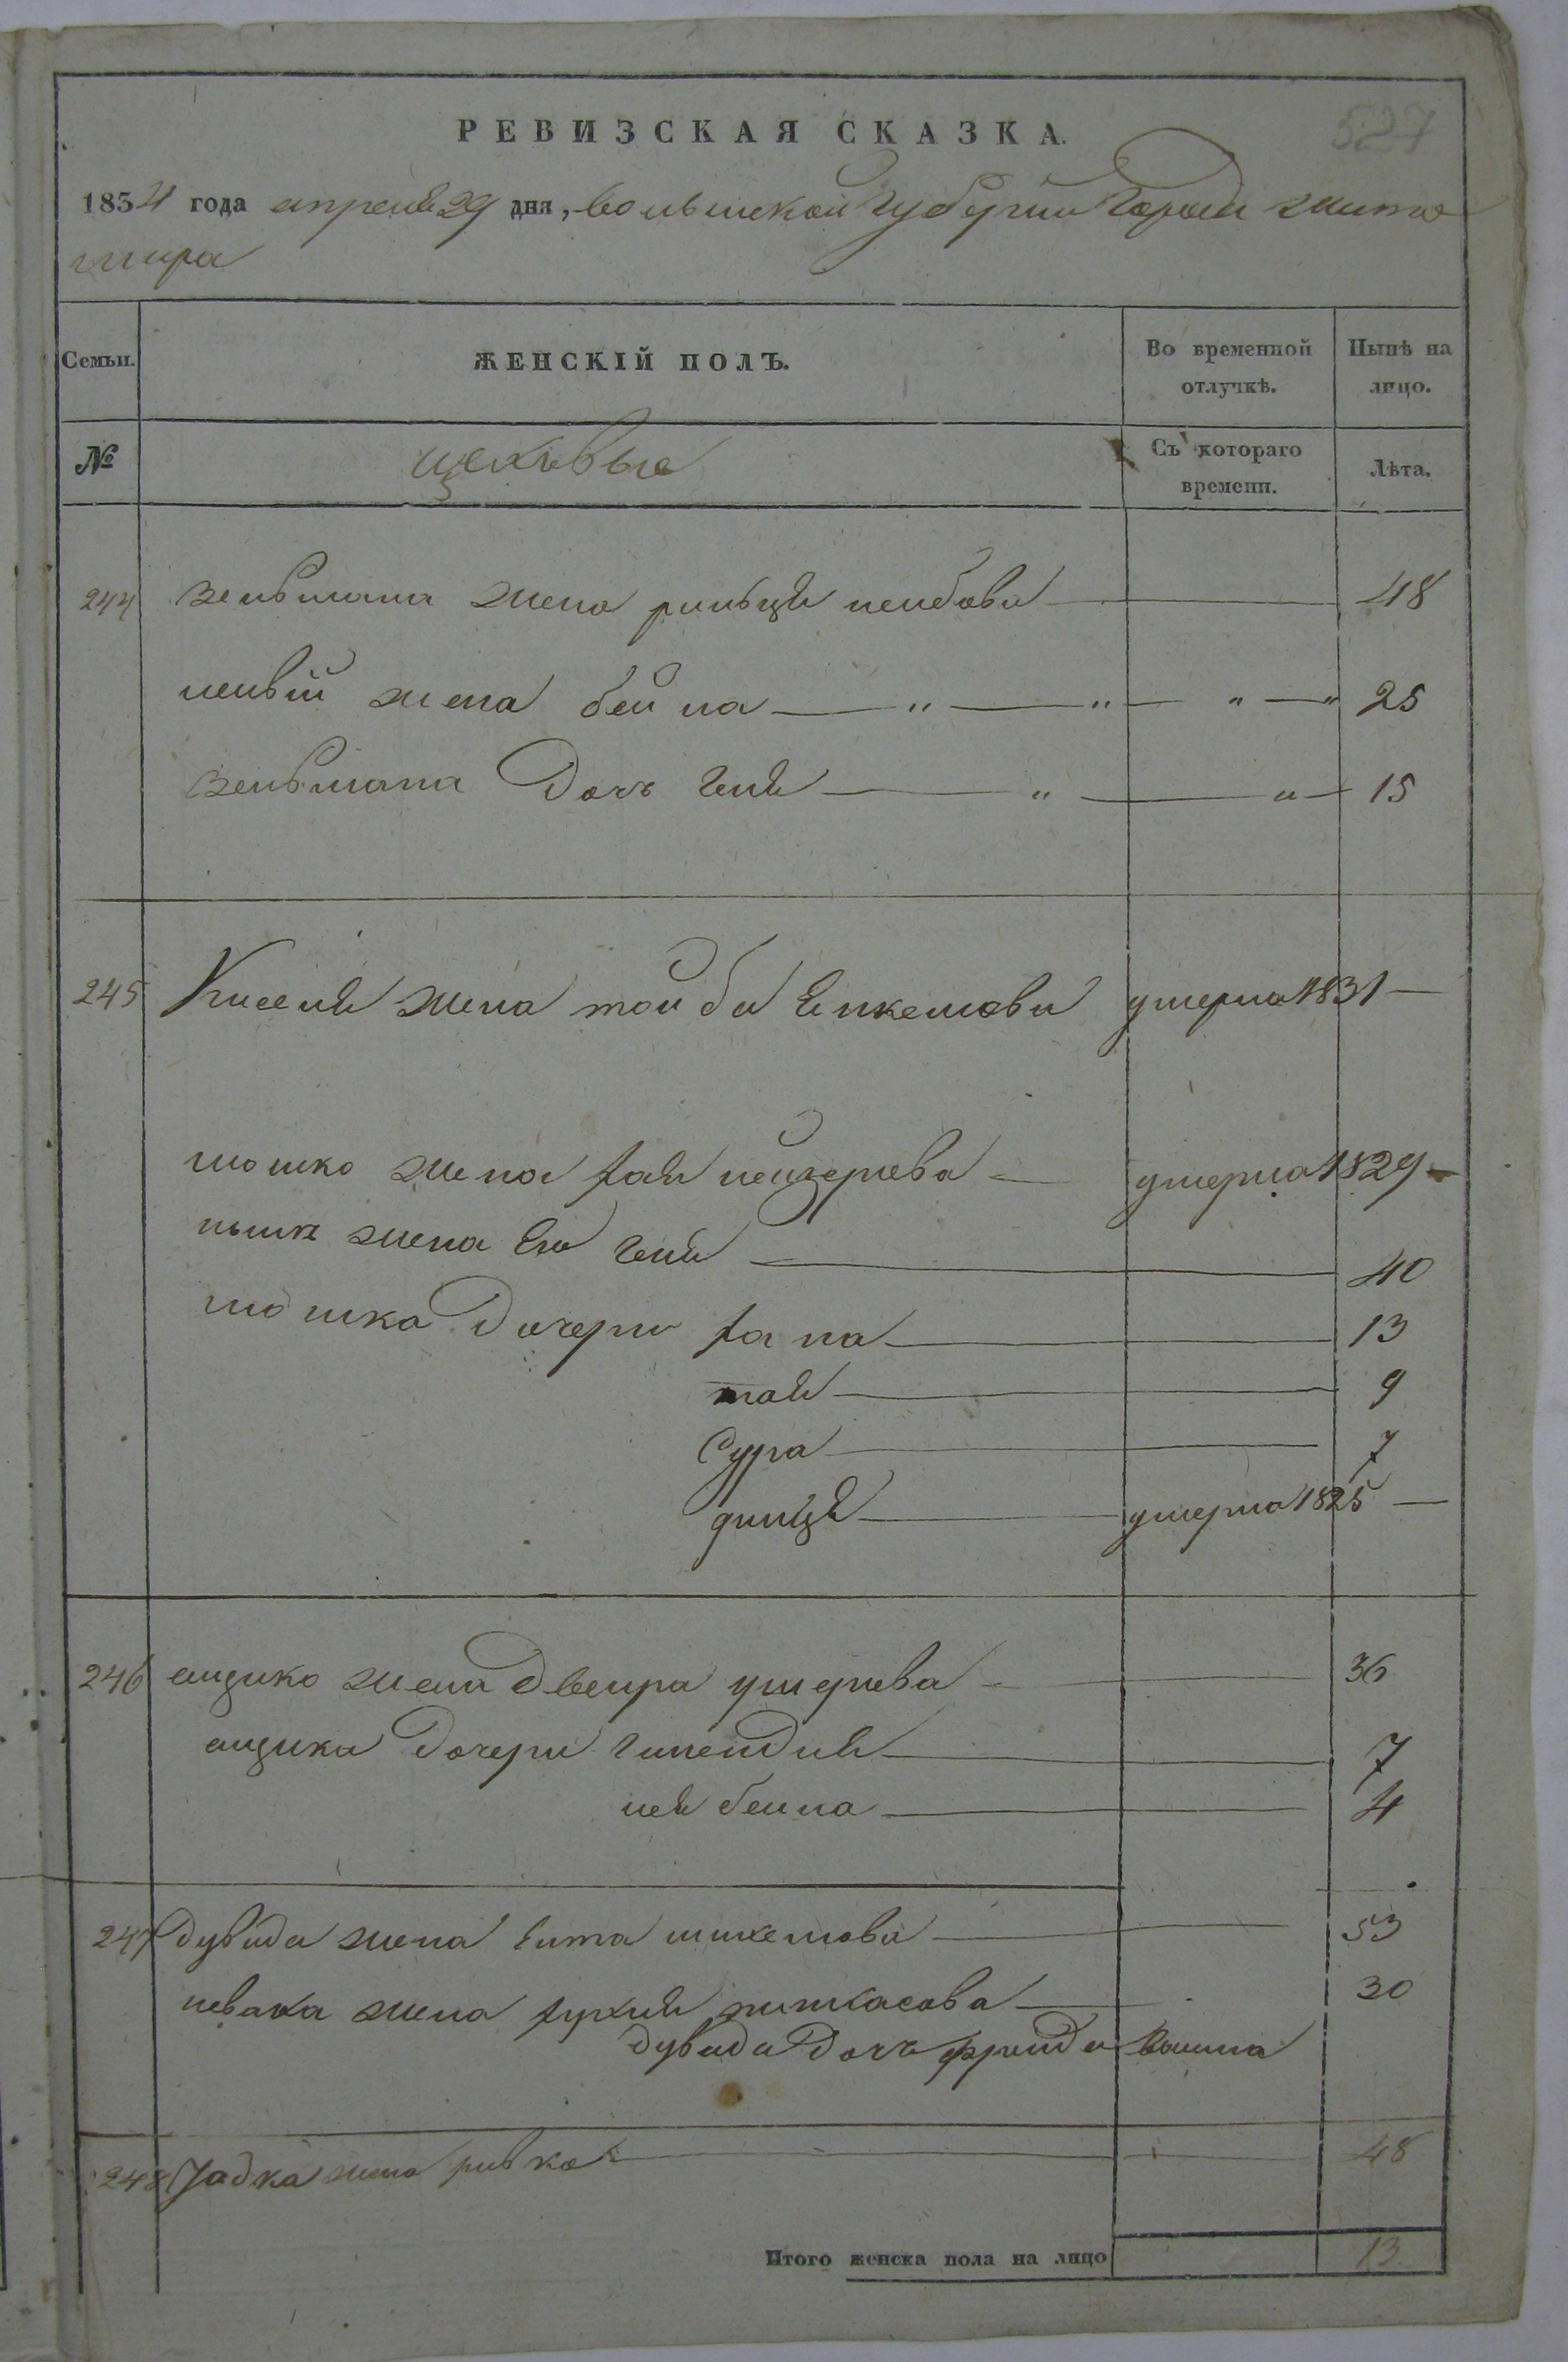 527
РЕВИЗСКАЯ СКАЗКА.
1834 года апреля 29 дня, волынской губернии города жито
мира
Семьи. ЖЕНСКІЙ ПОЛЪ. Во временной отлучкѣ. Нынѣ на лицо.
№ цеховые Съ котораго времени. Лѣта.
244 зельмана жена рыльця лейбова 48
лейвіи жена бейла — „ — „ — „ — „ 25
зельмана дочь геня — „ — „ 15
245 Киселя жена тойба умерла 1831 —
мошко жена хая лейзерова — умерла 1829 —
ныне жена его геня 40
мошка дочери хана 13
мая 9
Сура 7
умерла 1825 —
246 айзико жена двейра ушерова 36
айзика дочери 7
лея бейла 4
247 дувида жена Еита 53
жена пинкасова 30
дувида дочь фрейда вышла
248 жена ривка 48
Итого женска пола на лицо 13